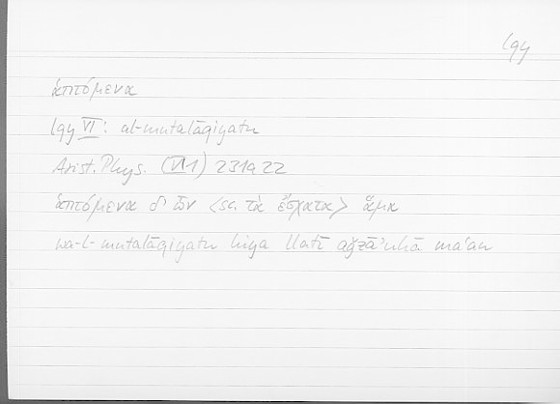 lqy
ἁπτόμενα
lqy VI: al-mutalāqiyatu
Arist. Phys. (VI 1) 231a22
ἁπτόμενα δ' ὧν <sc. τὰ ἔσχατα> ἅμα
wa-l-mutalāqiyatu hiya llatī aǧzāʾuhā maʿan